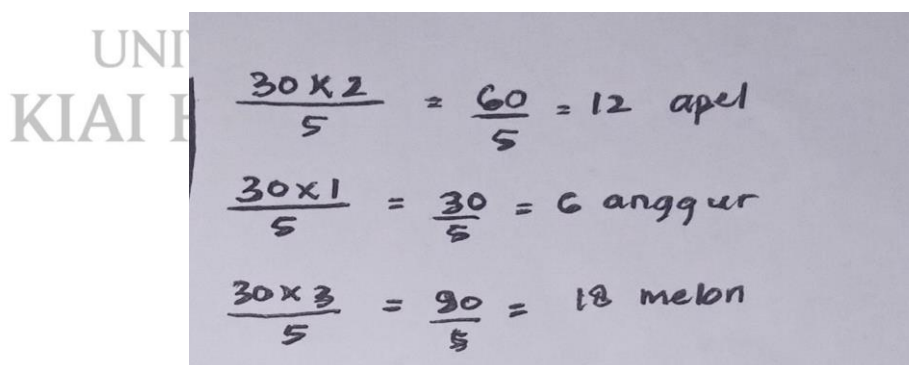 UNI
KIAI H
30 x 2 / 5 = 60 / 5 = 12 apel
30 x 1 / 5 = 30 / 5 = 6 anggur
30 x 3 / 5 = 90 / 5 = 18 melon